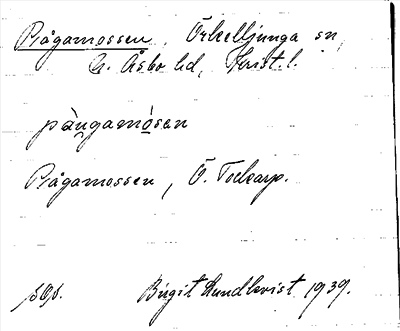 Plågamossen, Örkelljunga sn,
N. Åsbo hd, Krist. l.
plågamossen
Plågamossen, Ö. Tockarp.
sgs. Birgit Lundkvist 1939.